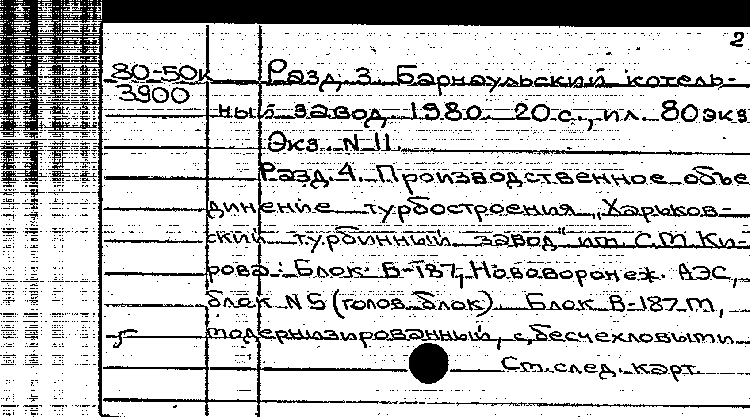 2
80-50к Разд. 3. Барнаульский котель-
3900 ный завод 1980. 20 с., ил. 80 экз
Экз. N 11.
Разд. 4. Производственное объе
динение турбостроения „Харьков-
ский турбинный завод" им. С.М. Ки-
рова: Блок В-187, Нововоронеж. АЭС,
блок N 5 (голов. блок). Блок В-187 м,
модернизированный, с бесчехловыми
См. след. карт.